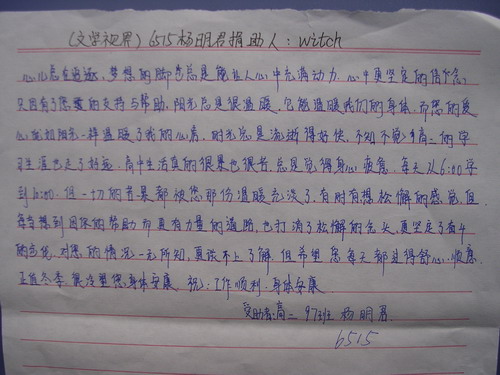 (文学视界) 6515杨明君捐助人: witch
心儿总在追逐,梦想的脚步总是能让人心中充满动力.心中更坚定的信念,
只因有了您爱的支持与帮助.阳光总是很温暖,它能温暖我们的身体.而您的爱
心宛如阳光一样温暖了我的心房.时光总是流逝得好快,不知不觉中高二的学
习生活也走了好远.高中生活真的很累也很苦.总是觉得身心疲惫.每天从6:00学
到10:00.但一切的苦累都被您那份温暖充淡了.有时有想松懈的感觉,但
每当想到因您的帮助而更有力量的道路,也打消了松懈的念头.更坚定了奋斗
的意志.对您的情况一无所知,更谈不上了解.但希望您每天都过得舒心.顺意.
正值冬季.很冷望您身体安康. 祝:工作顺利.身体安康
受助者:高二 97班 杨明君
6515